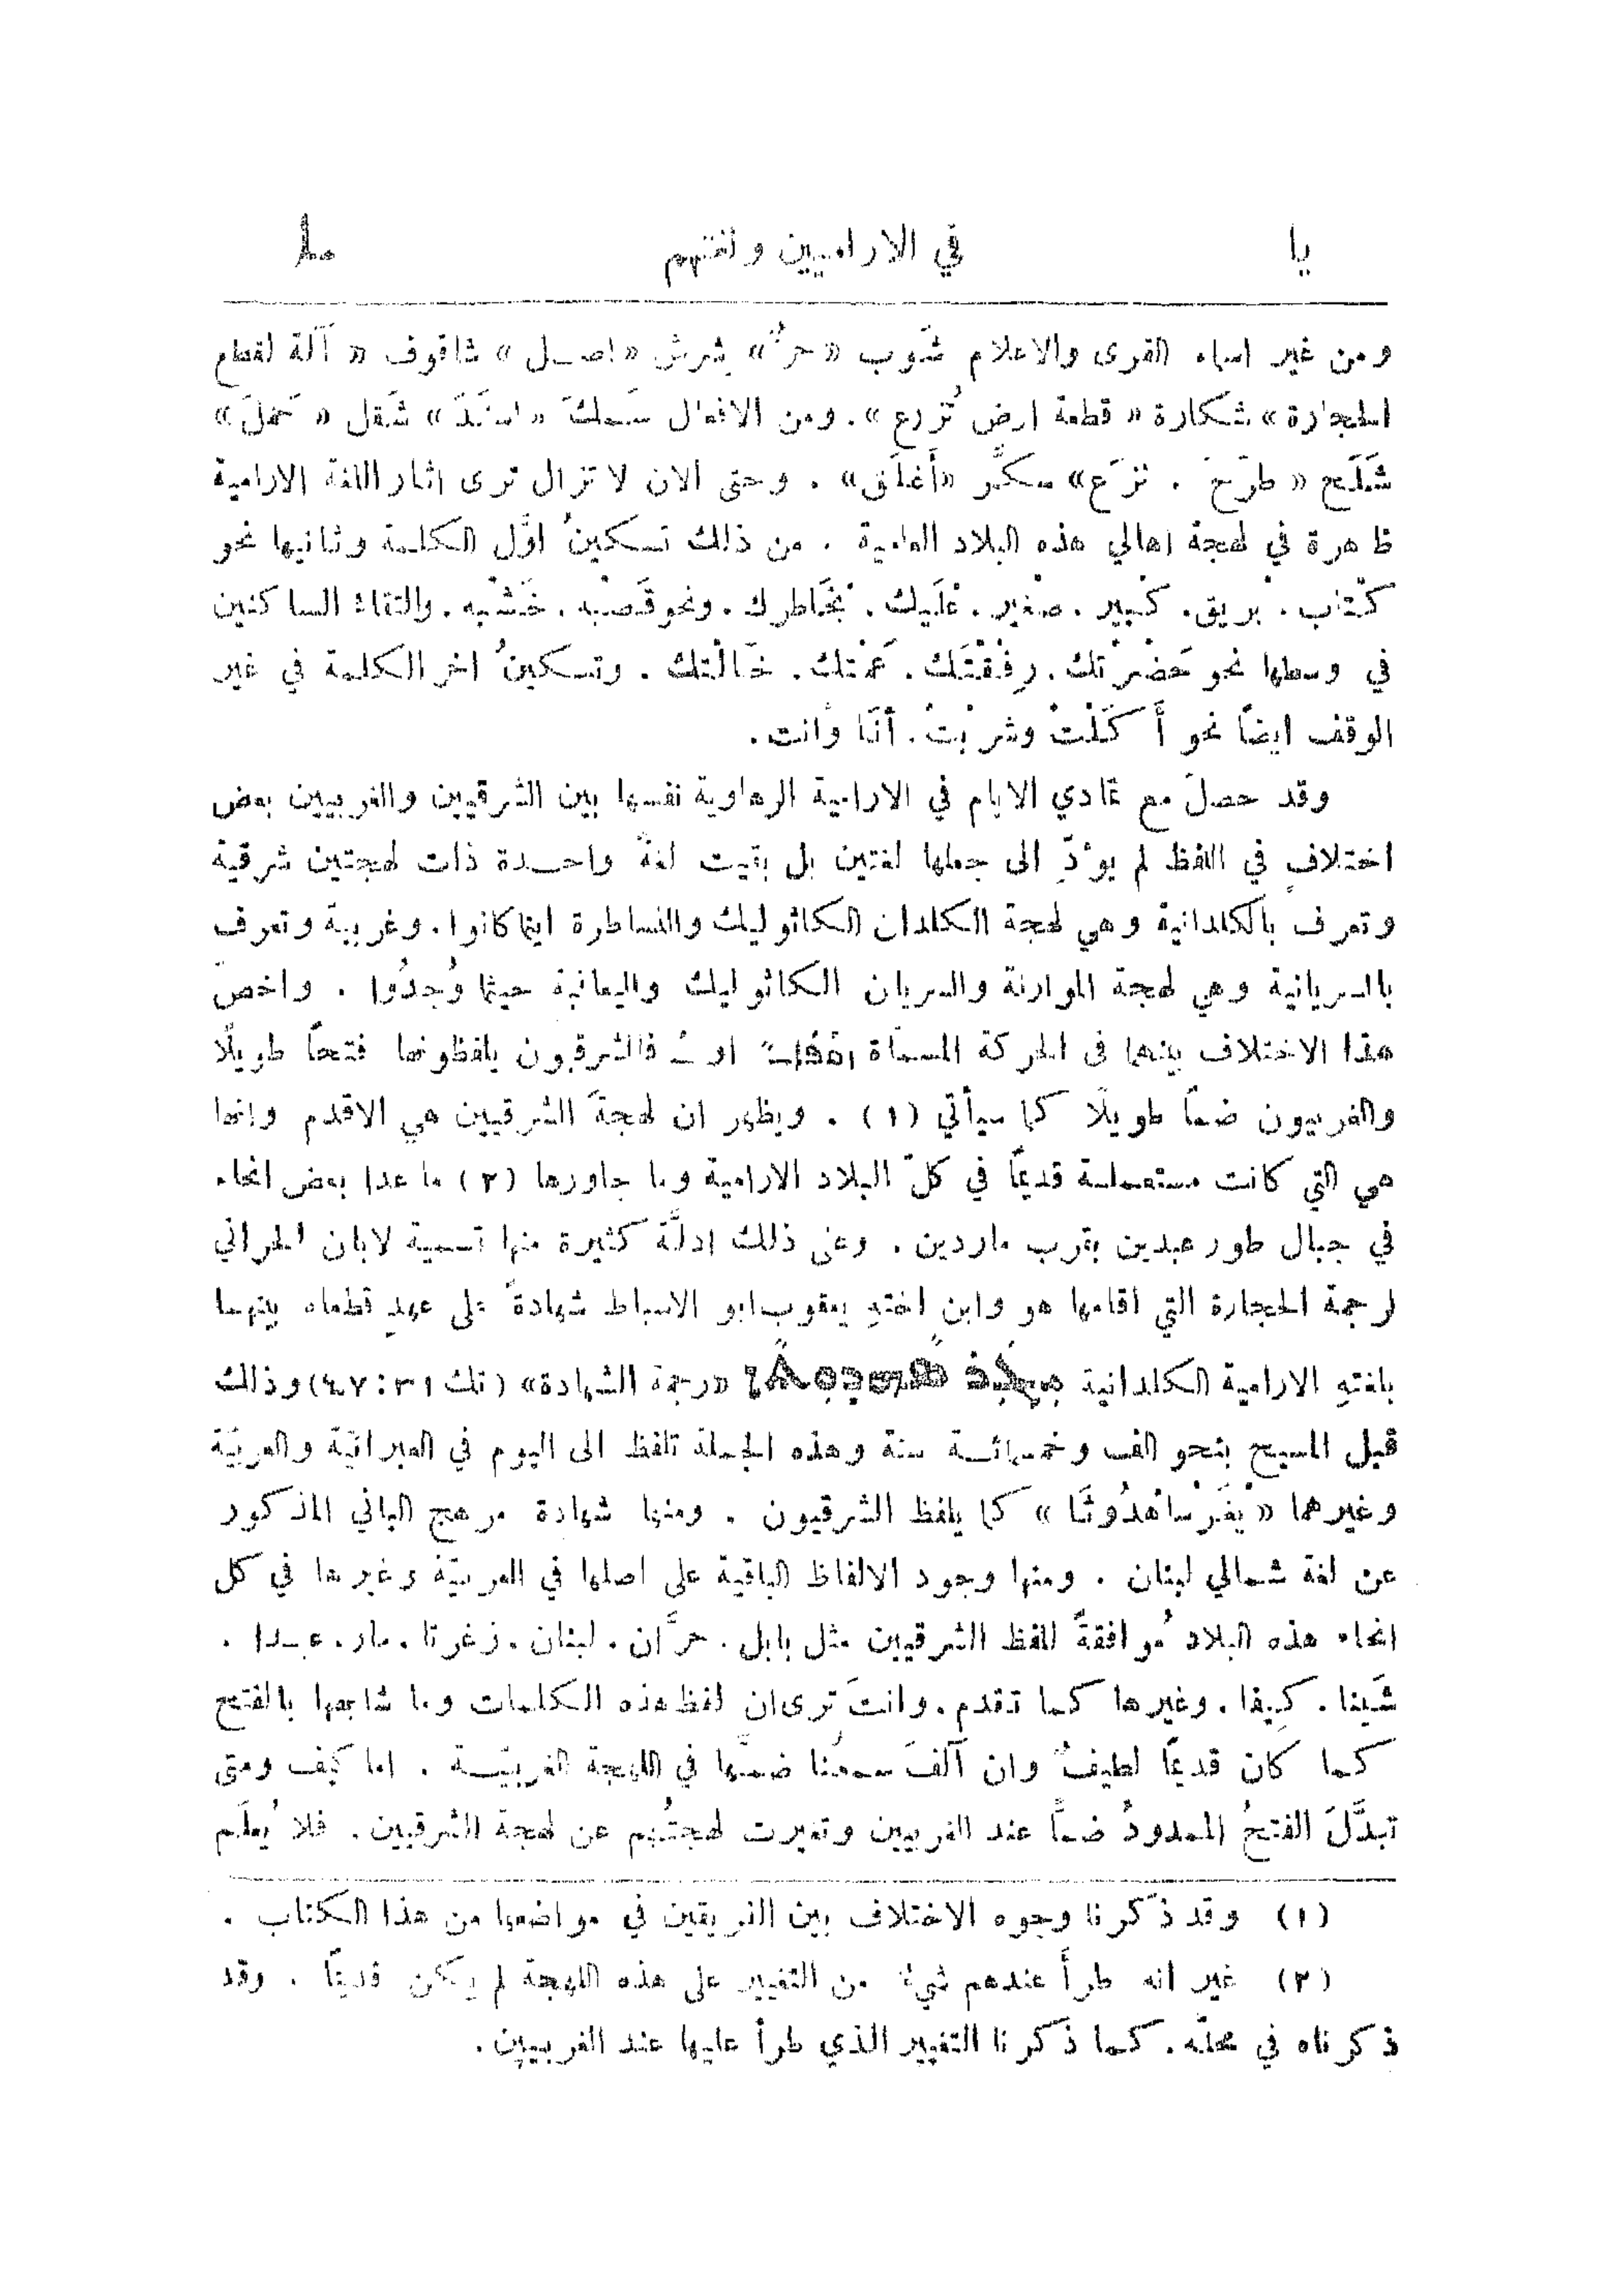 يا في الاراميين ولغتهم ܝܐ
ومن غير اسماء القرى والاعلام شَوب «حرٌّ» شرش «اصــل» شاقوف «آلة لقطع
الحجارة» شكارة «قطعة ارض تُزرع». ومن الافعال سَمكَ «اسنَدَ» شَقل «حَملَ»
شَلَح «طرَحَ . نزَع» سكَّر «أَغلَق» . وحتى الان لا تزال ترى اثار اللغة الارامية
ظاهرة في لهجة اهالي هذه البلاد العامية . من ذلك تسكينُ اوَّل الكلمة وثانيها نحو
كْتاب . بْريق. كْبير . صْغير . عْلَيك . بْخَاطرك . ونحو قَصْبه . خَشْبه . والتقاءُ الساكنين
في وسطها نحو حَضْرْتك . رِفْقْتَك . عَمْتك . خَالْتك . وتسكينُ اخر الكلمة في غير
الوقف ايضًا نحو أَكَلْتْ وشربْتْ . أَنَا وْانت .
وقد حصلَ مع تمادي الايام في الارامية الرهاوية نفسها بين الشرقيين والغربيين بعض
اختلافٍ في اللفظ لم يؤَدِّ الى جعلها لغتين بل بقيت لغةً واحــدة ذات لهجتين شرقية
وتعرف بالكلدانية وهي لهجة الكلدان الكاثوليك والنساطرة اينما كانوا . وغربية وتعرف
بالسريانية وهي لهجة الموارنة والسريان الكاثوليك واليعاقبة حيثما وُجِدُوا . واخصّ
هذا الاختلاف بينهما في الحركة المسمَّاة ܙܩܳܦܐ او ـُ فالشرقيون يلفظونها فتحًا طويلًا
والغربيون ضمًا طويلًا كما سيأتي (١) . ويظهر ان لهجةَ الشرقيين هي الاقدم وانها
هي التي كانت مستعملــة قديمًا في كلّ البلاد الارامية وما جاورها (٢) ما عدا بعض انحاء
في جبال طور عبدين بقرب ماردين . وعلى ذلك ادلَّة كثيرة منها تسمية لابان الحراني
لرجمة الحجارة التي اقامها هو وابن اختهِ يعقوب ابو الاسباط شهادةً على عهدٍ قطعاه بينهما
بلغتهِ الارامية الكلدانية ܝܓܰܪ ܣܳܗܕܘܬܳܐ «رجمة الشهادة» (تك ٣١: ٤٧) وذلك
قبل المسيح بنحو الف وخمسمائــة سنة وهذه الجملة تلفظ الى اليوم في العبرانيّة والعربيّة
وغيرهما «يْغَرْسَاهْدُوثَا» كما يلفظ الشرقيون . ومنها شهادة مرهج الباني المذكور
عن لغة شمالي لبنان . ومنها وجود الالفاظ الباقية على اصلها في العربيّة وغيرها في كل
انحاء هذه البلاد مُوافقةً للفظ الشرقيين مثل بابل . حرَّان . لبنان . زغرتا . مار . عبــدا .
شَينا . كِيفا . وغيرها كما تقدم . وانتَ ترى ان لفظ هذه الكلمات وما شابهها بالفتح
كما كان قديمًا لطيفٌ وان آلفَ سمعُنا ضمَّها في اللهجة الغربيّــة . اما كيف ومتى
تبدَّلَ الفتحُ الممدودُ ضمًّا عند الغربيين وتغيرت لهجتُهم عن لهجة الشرقيين . فلا يُعلَم
(١) وقد ذكرنا وجوه الاختلاف بين الفريقين في مواضعها من هذا الكتاب .
(٢) غير انه طرأَ عندهم شيءٌ من التغيير على هذه اللهجة لم يكن قديمًا . وقد
ذكرناه في محلّه . كما ذكرنا التغيير الذي طرأ عليها عند الغربيين .